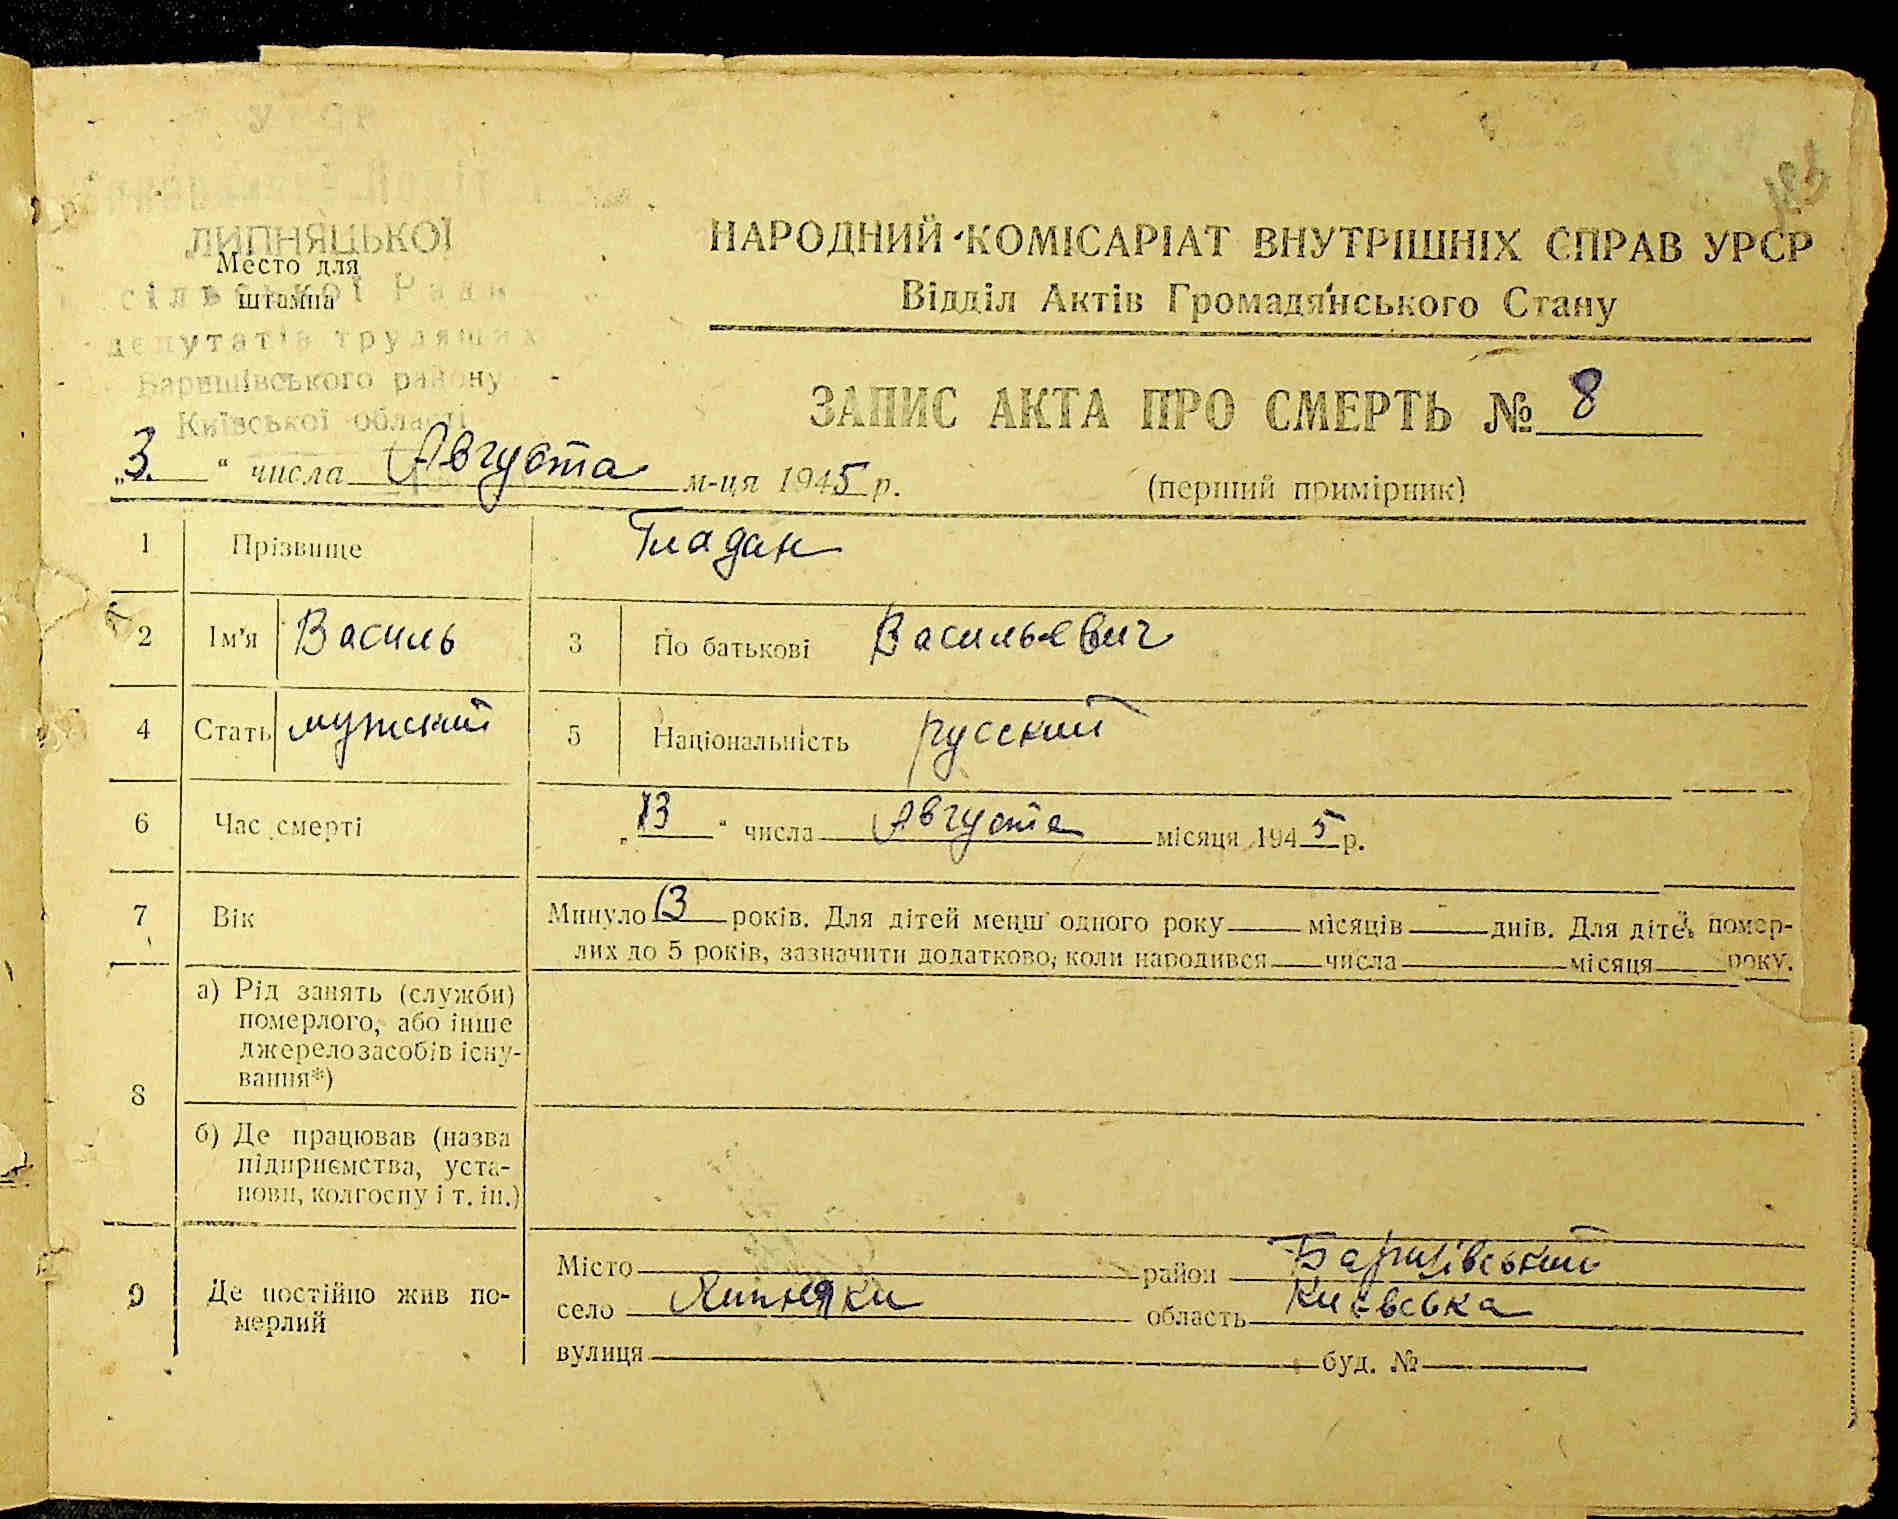 УРСР
ЛИПНЯЦЬКОЇ
Место для
штампа
сільської Ради
депутатів трудящих
Баришівського району
Київської області
НАРОДНИЙ КОМІСАРІАТ ВНУТРІШНІХ СПРАВ УРСР
Відділ Актів Громадянського Стану
ЗАПИС АКТА ПРО СМЕРТЬ № 8
„3.“ числа Августа м-ця 1945 р.
(перший примірник)
1 Прізвище Гладан
2 Ім'я Василь 3 По батькові Васильевич
4 Стать мужский 5 Національність русский
6 Час смерті „13“ числа Августа місяця 1945 р.
7 Вік Минуло 13 років. Для дітей менш одного року місяців днів. Для дітей, помер-
лих до 5 років, зазначити додатково, коли народився числа місяця року.
8
а) Рід занять (служби)
померлого, або інше
джерело засобів існу-
вання*)
б) Де працював (назва
підприємства, уста-
нови, колгоспу і т. ін.)
9 Де постійно жив по-
мерлий
Місто район Баришівський
село Липняки область Киевська
вулиця буд. №